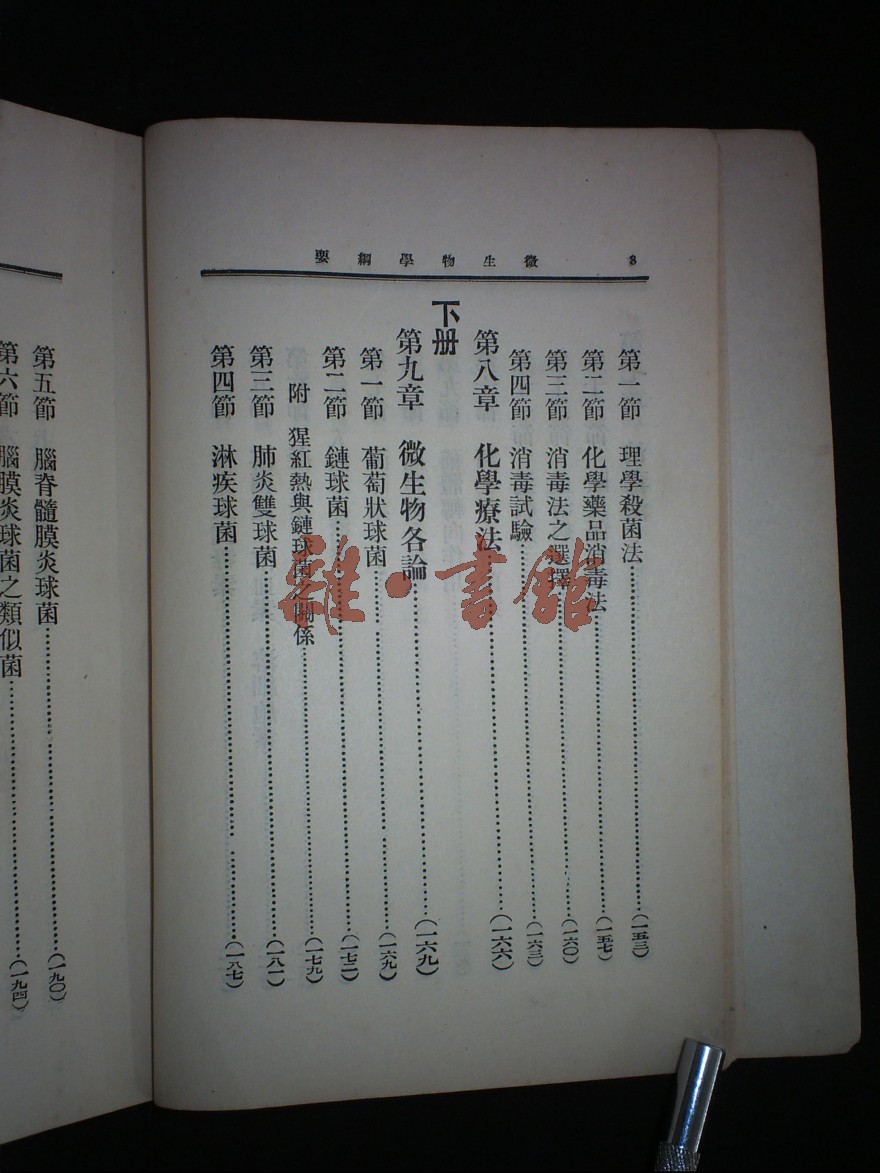 微生物學綱要 8
第一節 理學殺菌法……(一五三)
第二節 化學藥品消毒法……(一五七)
第三節 消毒法之選擇……(一六〇)
第四節 消毒試驗……(一六三)
第八章 化學療法……(一六六)
下册
第九章 微生物各論……(一六九)
第一節 葡萄狀球菌……(一六九)
第二節 鏈球菌……(一七二)
附 猩紅熱與鏈球菌之關係……(一七九)
第三節 肺炎雙球菌……(一八一)
第四節 淋疾球菌……(一八七)
第五節 腦脊髓膜炎球菌……(一九〇)
第六節 腦膜炎球菌之類似菌……(一九四)
雜·書館